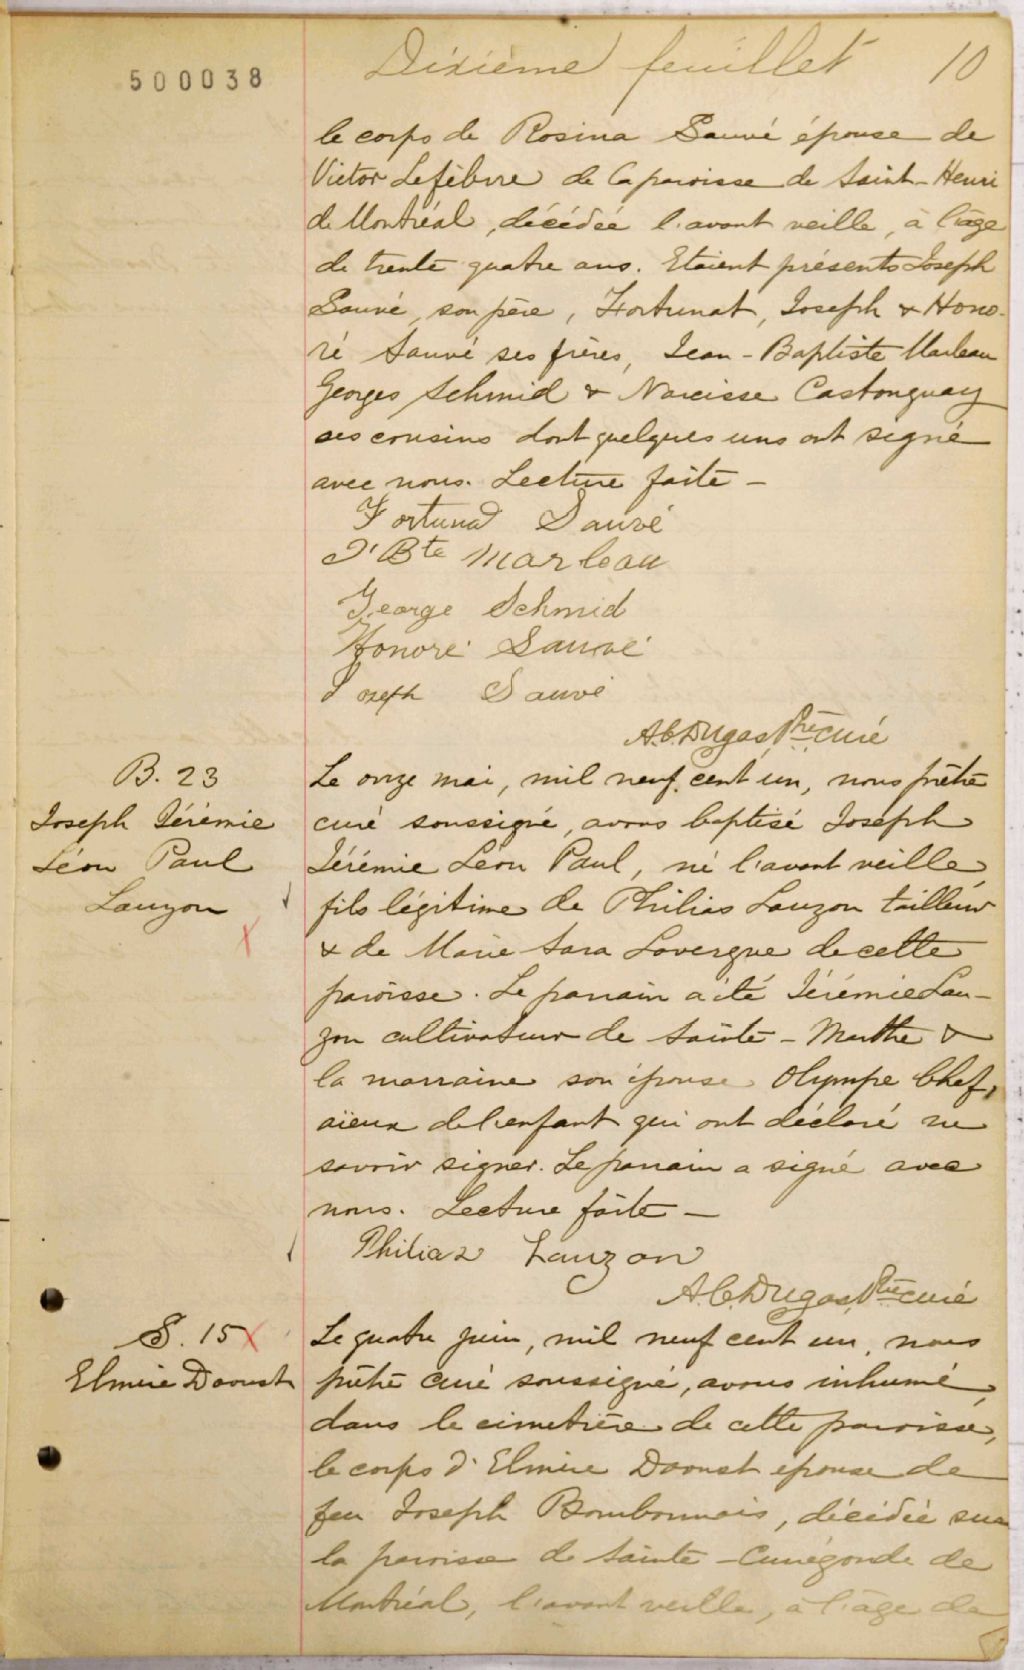 500038
Dixième feuillet 10
le corps de Rosina Sauvé épouse de
Victor Lefèbvre de la paroisse de Saint-Henri
de Montréal, décédée l'avant veille, à l'âge
de trente quatre ans. Etaient présents Joseph
Sauvé, son père, Fortunat, Joseph & Hono-
ré Sauvé ses frères, Jean-Baptiste Marleau
Georges Schmid & Narcisse Castonguay
ses cousins dont quelques uns ont signé
avec nous. Lecture faite —
Fortunat Sauvé
J Bte Marleau
George Schmid
Honoré Sauvé
Joseph Sauvé
A.C. Dugas, Ptre curé
B. 23
Joseph Jérémie
Léon Paul
Lauzon
X
Le onze mai, mil neuf cent un, nous prêtre
curé soussigné, avons baptisé Joseph
Jérémie Léon Paul, né l'avant veille,
fils légitime de Philias Lauzon tailleur
& de Marie Sara Lavergne de cette
paroisse. Le parrain a été Jérémie Lau-
zon cultivateur de Sainte-Marthe &
la marraine son épouse Olympe Chef,
aïeux de l'enfant qui ont déclaré ne
savoir signer. Le parrain a signé avec
nous. Lecture faite —
Philias Lauzon
A.C. Dugas, Ptre curé
S. 15 X
Elmire Daoust
Le quatre juin, mil neuf cent un, nous
prêtre curé soussigné, avons inhumé,
dans le cimetière de cette paroisse,
le corps d'Elmire Daoust épouse de
feu Joseph Bourbonnais, décédée sur
la paroisse de Sainte-Cunégonde de
Montréal, l'avant veille, à l'âge de